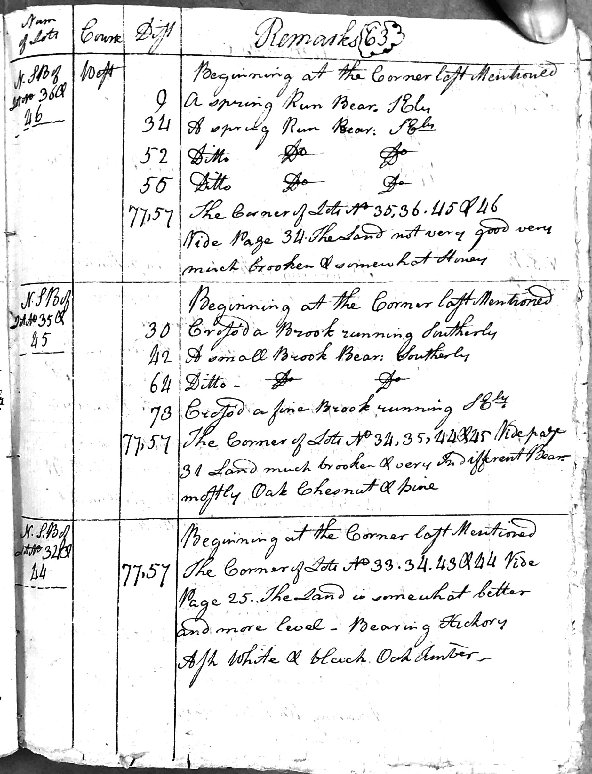 Num of Lots Course Dist Remarks 63
N. S. B of Lot No 36 & 46 West Beginning at the Corner last Mentioned
9 A spring Run Bear. SEly
34 A spring Run Bear. SEly
52 Ditto Do Do
55 Ditto Do Do
77,57 The Corner of Lots No 35, 36. 45 & 46
Vide Page 34. The Land not very good very
much brooken & somewhat Stoney
N. S. B of Lot No 35 & 45 Beginning at the Corner last Mentioned
30 Cross'd a Brook running Southerly
42 A small Brook Bear: Southerly
64 Ditto - Do Do
73 Cross'd a fine Brook running SEly
77,57 The Corner of Lots No 34, 35, 44 & 45 Vide page
31 Land much brooken & very Indifferent Bear-
mostly Oak Chesnut & pine
N. S. B of Lot No 44 Beginning at the Corner last Mentioned
77,57 The Corner of Lots No 33. 34. 43 & 44 Vide
Page 25. The Land is somewhat better
and more level - Bearing Hickory
Ash White & black Oak timber -